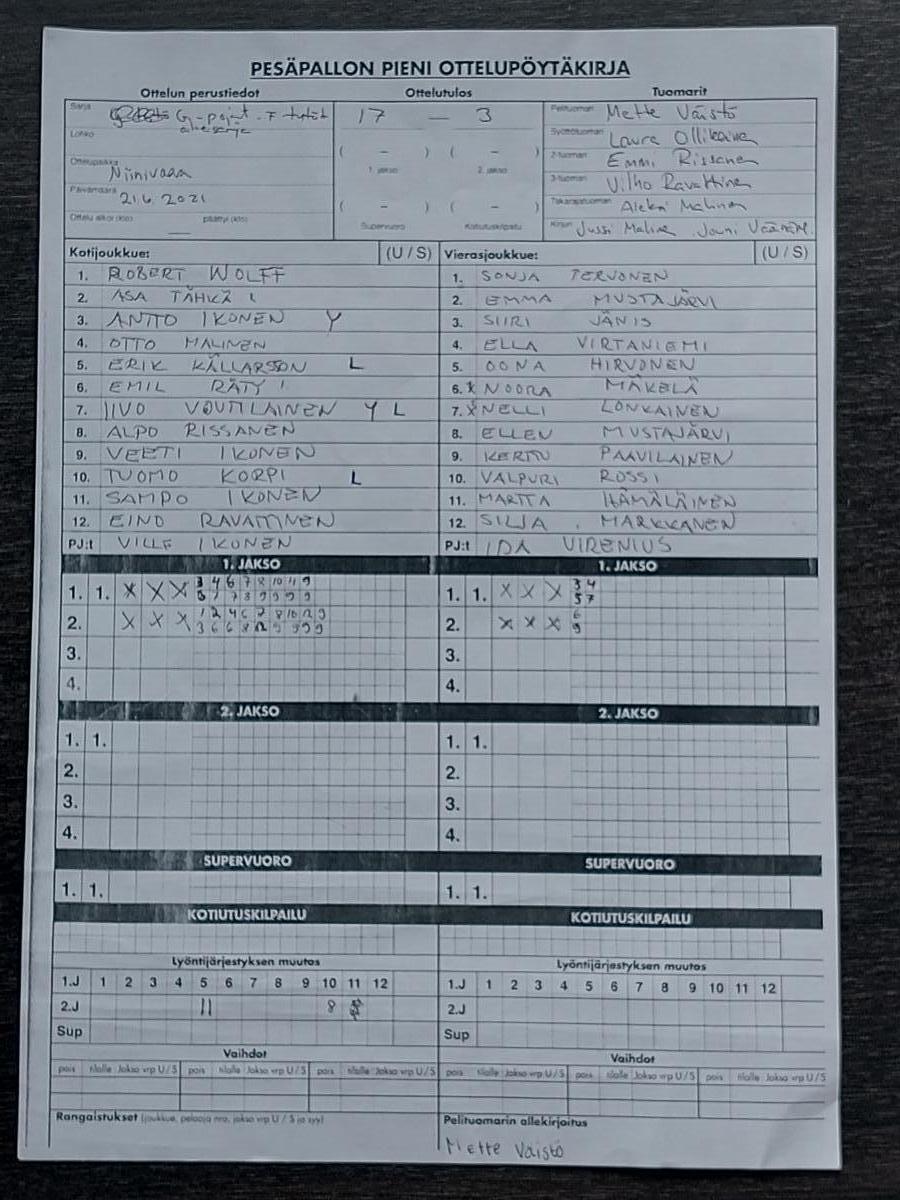 PESÄPALLON PIENI OTTELUPÖYTÄKIRJA
Ottelun perustiedot Ottelutulos Tuomarit
Sarja G-pojat - F tytöt
alkusarja
Lohko
Ottelupaikka Niinivaara
Päivämäärä 21.6.2021
Ottelu alkoi (klo) — päättyi (klo)
17 — 3
( – ) ( – )
1. jakso 2. jakso
( – ) ( – )
Supervuoro Kotiutuskilpailu
Pelituomari Mette Väistö
Syöttötuomari Laura Ollikainen
2-tuomari Emmi Rissanen
3-tuomari Vilho Ravattinen
Takarajatuomari Aleksi Malinen
Kirjuri Jussi Malinen Jouni
Kotijoukkue: (U / S)
1. ROBERT WOLFF
2. ASA TÄHKÄ
3. ANTTO IKONEN Y
4. OTTO MALINEN
5. ERIK KÄLLARSSON L
6. EMIL RÄTY
7. IIVO VOUTILAINEN Y L
8. ALPO RISSANEN
9. VEETI IKONEN
10. TUOMO KORPI L
11. SAMPO IKONEN
12. EINO RAVATTINEN
PJ:t VILLE IKONEN
Vierasjoukkue: (U / S)
1. SONJA TERVONEN
2. EMMA MUSTAJÄRVI
3. SIIRI JÄNIS
4. ELLA VIRTANIEMI
5. OONA HIRVONEN
6. X NOORA MÄKELÄ
7. X NELLI LONKAINEN
8. ELLEN MUSTAJÄRVI
9. KERTTU PAAVILAINEN
10. VALPURI ROSSI
11. MARTTA HÄMÄLÄINEN
12. SILJA MARKKANEN
PJ:t IDA VIRENIUS
1. JAKSO 1. JAKSO
1. 1. X X X 3 4 6 7 8 10 11 9
2. X X X 1 2 4 6 7 8 10 12 9
3.
4.
1. 1. X X X 3 4
5 7
2. X X X 6
9
3.
4.
2. JAKSO 2. JAKSO
1. 1. 1. 1.
2. 2.
3. 3.
4. 4.
SUPERVUORO SUPERVUORO
1. 1. 1. 1.
KOTIUTUSKILPAILU KOTIUTUSKILPAILU
Lyöntijärjestyksen muutos Lyöntijärjestyksen muutos
1.J 1 2 3 4 5 6 7 8 9 10 11 12 1.J 1 2 3 4 5 6 7 8 9 10 11 12
2.J 11 8 2.J
Sup Sup
Vaihdot Vaihdot
pois tilalle Jakso vrp U / S pois tilalle Jakso vrp U / S pois tilalle Jakso vrp U / S pois tilalle Jakso vrp U / S pois tilalle Jakso vrp U / S pois tilalle Jakso vrp U / S
Rangaistukset (joukkue, pelaaja nro, jakso vrp U / S ja syy) Pelituomarin allekirjoitus
Mette Väistö